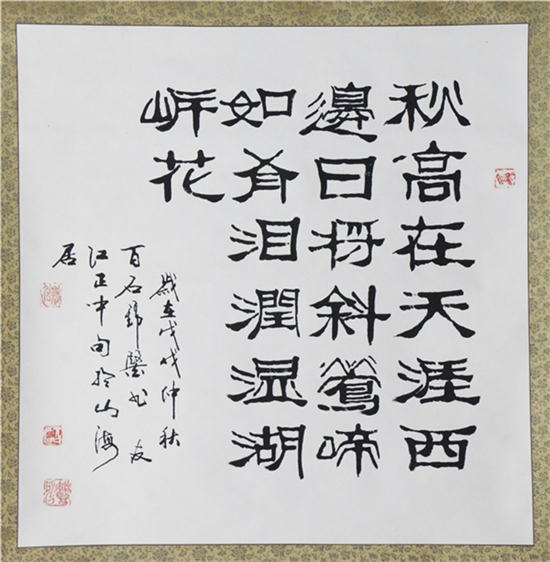 秋高在天涯西
邊日将斜鶯啼
如有泪潤湿湖
岍花
歲在戊戌仲秋
百石书友
江正中句於山海
居